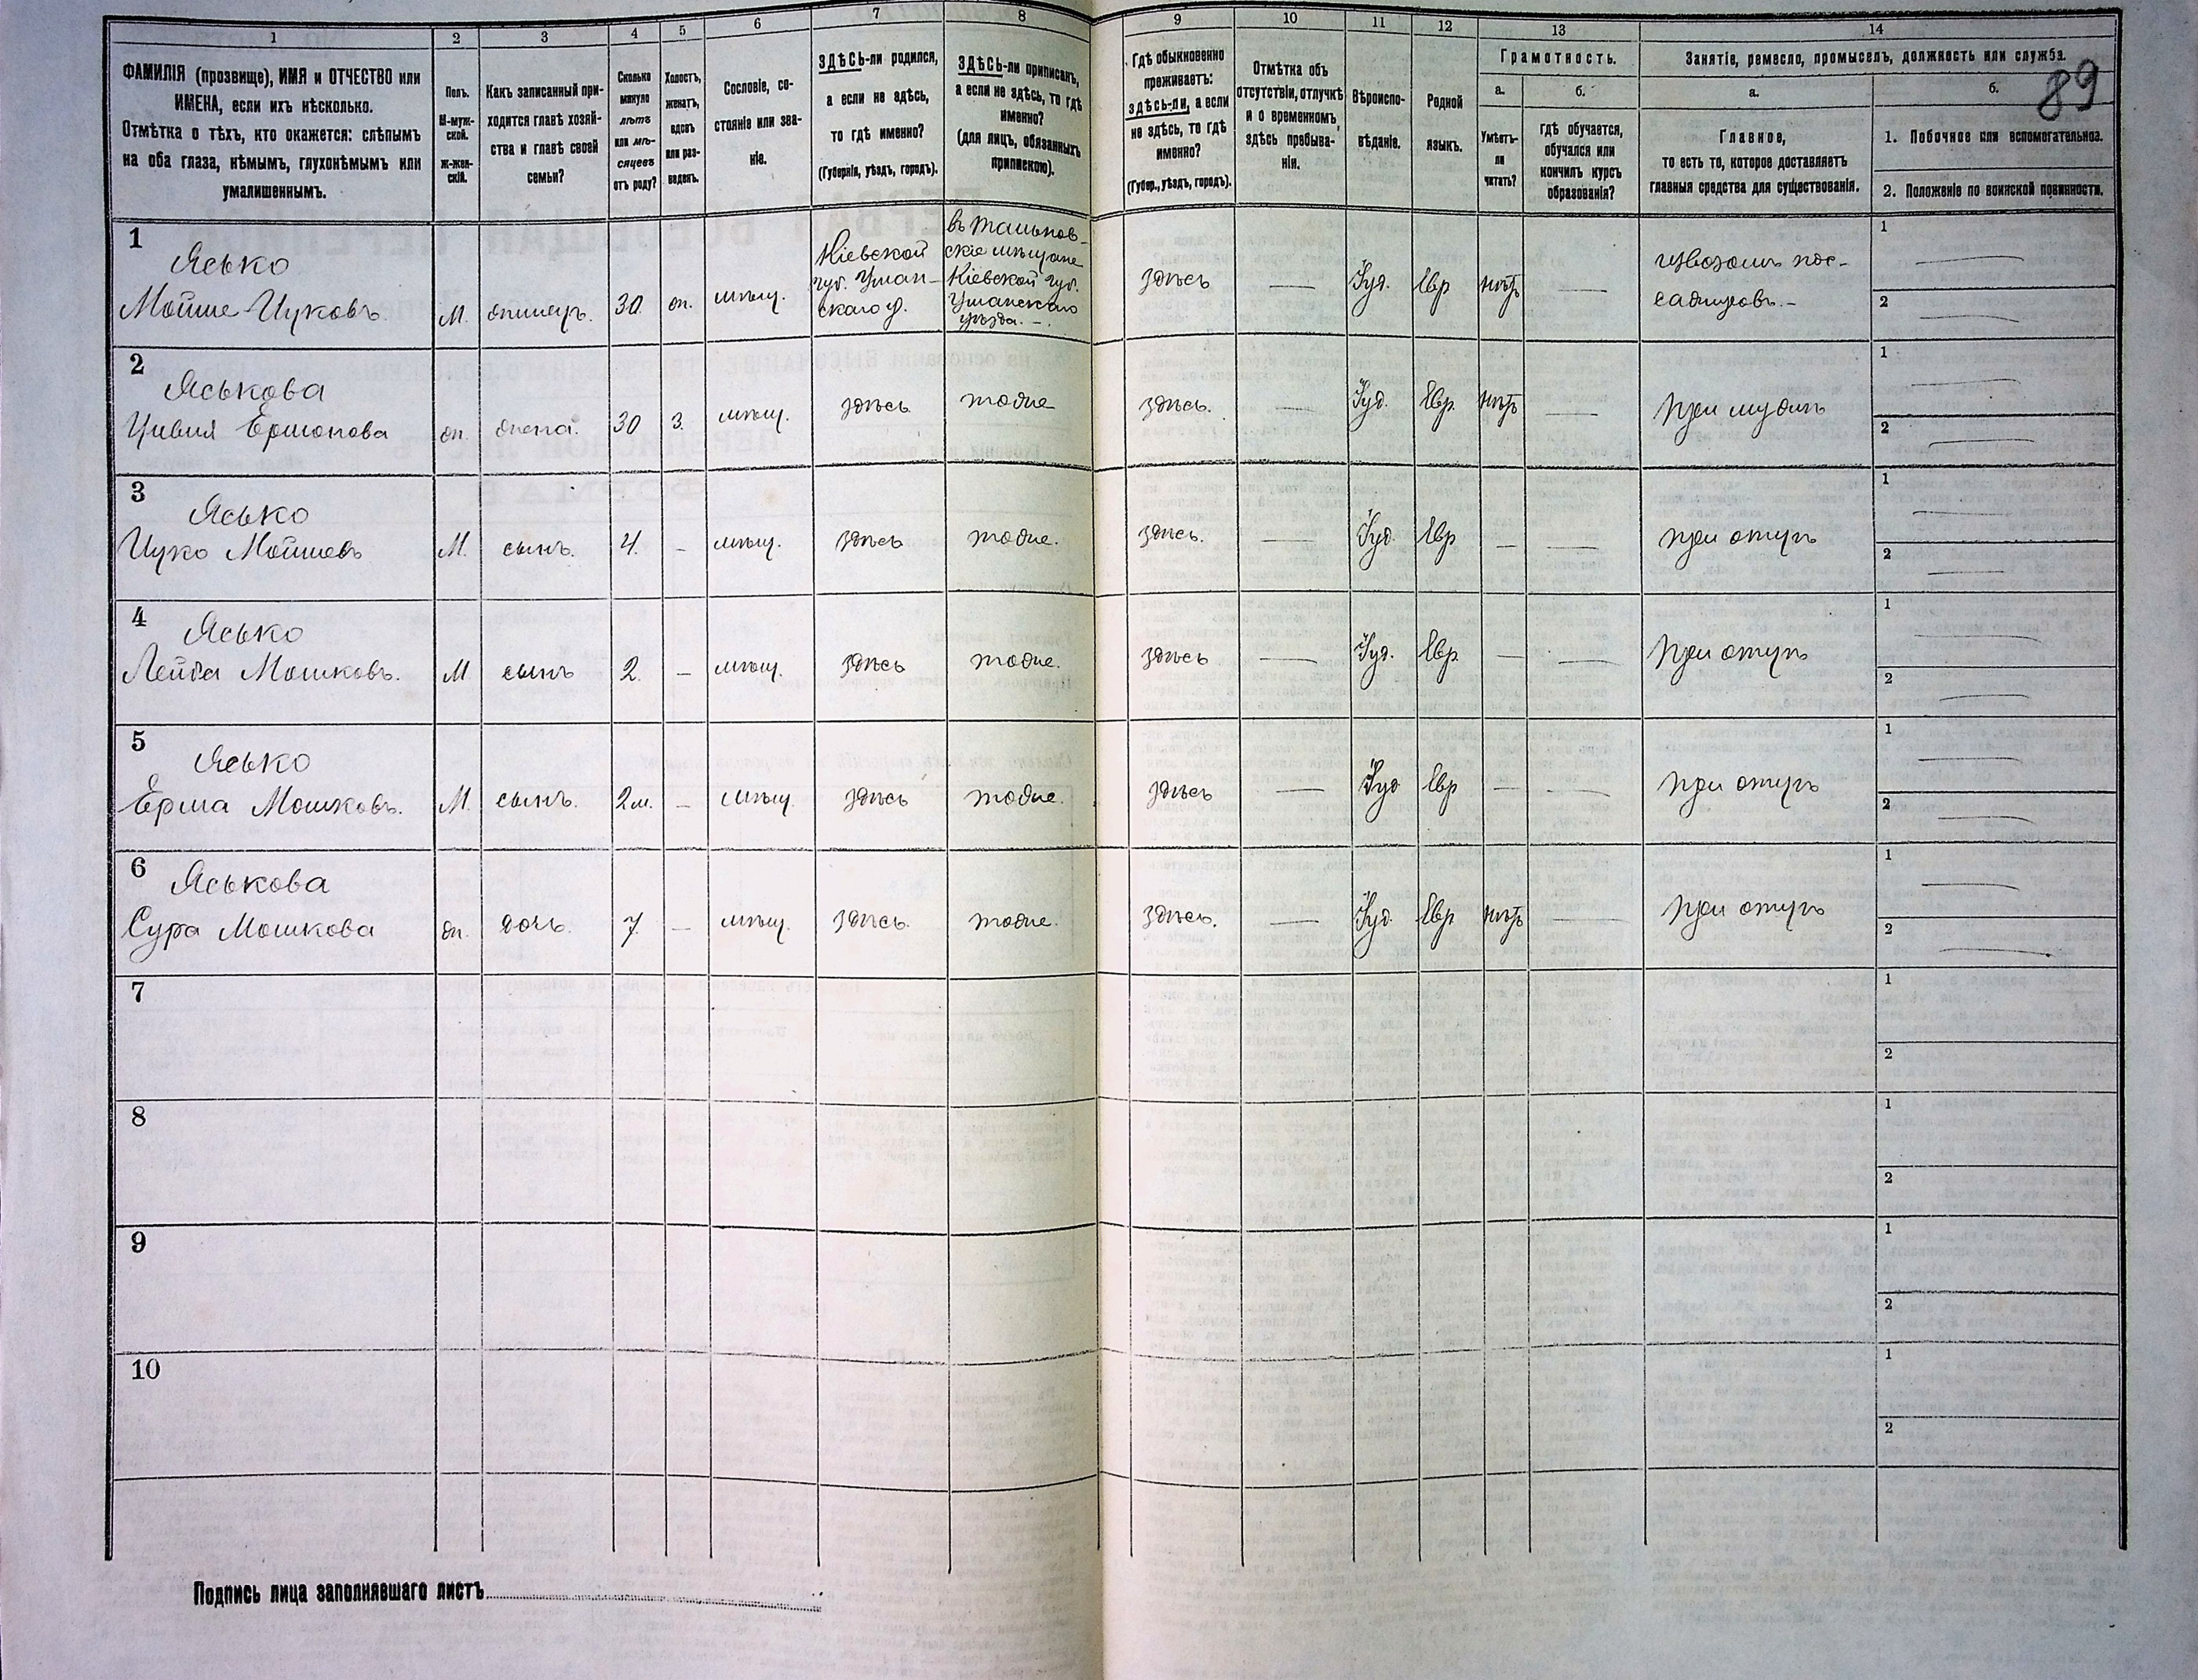 1
2
3
4
5
6
7
8
9
10
11
12
13
14
ФАМИЛІЯ (прозвище), ИМЯ и ОТЧЕСТВО или
ИМЕНА, если ихъ нѣсколько.
Отмѣтка о тѣхъ, кто окажется: слѣпымъ
на оба глаза, нѣмымъ, глухонѣмымъ или
умалишеннымъ.
Полъ.
М-муж-
ской.
Ж-жен-
скій.
Какъ записанный при-
ходится главѣ хозяй-
ства и главѣ своей
семьи?
Сколько
минуло
лѣтъ
или мѣ-
сяцевъ
отъ роду?
Холостъ,
женатъ,
вдовъ
или раз-
веденъ.
Сословіе, со-
стояніе или зва-
ніе.
ЗДѢСЬ-ли родился,
а если не здѣсь,
то гдѣ именно?
(Губернія, уѣздъ, городъ).
ЗДѢСЬ-ли приписанъ,
а если не здѣсь, то гдѣ
именно?
(для лицъ, обязанныхъ
припискою).
Гдѣ обыкновенно
проживаетъ:
здѣсь-ли, а если
не здѣсь, то гдѣ
именно?
(Губер., уѣздъ, городъ).
Отмѣтка объ
отсутствіи, отлучкѣ
и о временномъ
здѣсь пребыва-
ніи.
Вѣроиспо-
вѣданіе.
Родной
языкъ.
Грамотность.
а.
Умѣетъ-
ли
читать?
б.
гдѣ обучается,
обучался или
кончилъ курсъ
образованія?
Занятіе, ремесло, промыселъ, должность или служба.
89
а.
Главное,
то есть то, которое доставляетъ
главныя средства для существованія.
б.
1. Побочное или вспомогательное.
2. Положеніе по воинской повинности.
1
Ясько
Мойше Ицковъ
М.
30
мѣщ.
Кіевской
губ. Уман-
скаго у.
въ Тальнов-
скіе мѣщане
Кіевской губ.
Уманскаго
уѣзда. –.
здѣсь
—
Іуд.
Евр
нѣтъ
—
извозомъ пас-
сажировъ.–
1 —
2 —
2
Яськова
Цивия Ермонова
ж.
жена.
30
З.
мѣщ.
здѣсь
тоже
здѣсь.
—
Іуд.
Евр.
нѣтъ
—
При мужѣ
1 —
2 —
3
Ясько
Ицко Мойшевъ
М.
сынъ.
4.
–
мѣщ.
здѣсь
тоже.
здѣсь.
—
Іуд.
Евр
—
—
при отцѣ
1 —
2 —
4
Ясько
Лейба Мошковъ.
М
сынъ
2.
–
мѣщ.
здѣсь
тоже.
здѣсь
—
Іуд.
Евр.
—
—
При отцѣ
1 —
2 —
5
Ясько
Ерма Мошковъ.
М.
сынъ.
2 м.
–
мѣщ.
здѣсь
тоже.
здѣсь
—
Іуд
Евр
—
—
при отцѣ
1 —
2 —
6
Яськова
Сура Мошкова
ж.
дочь.
7.
–
мѣщ.
здѣсь.
тоже.
здѣсь.
—
Іуд
Евр
нѣтъ
—
При отцѣ
1 —
2 —
7
1
2
8
1
2
9
1
2
10
1
2
Подпись лица заполнявшаго листъ